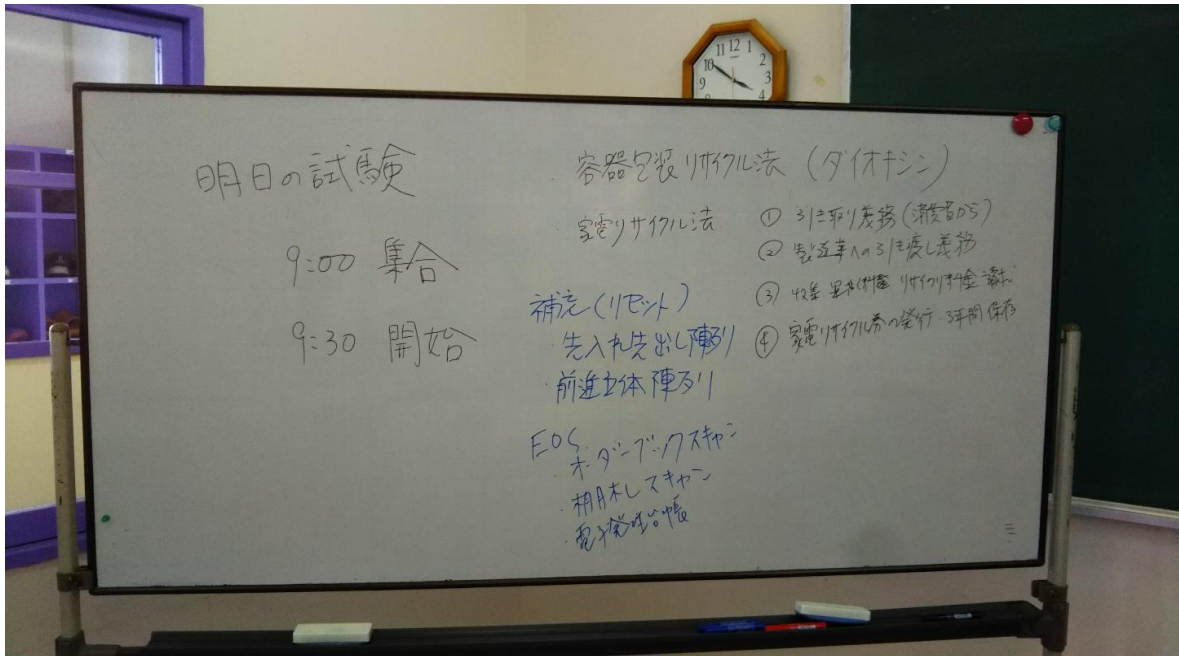 明日の試験
9:00 集合
9:30 開始
容器包装リサイクル法 (ダイオキシン)
家電リサイクル法
① 引き取り義務(消費者から)
② 製造業への引き渡し義務
③ 収集 運搬料金 リサイクル料金 請求
④ 家電リサイクル券の発行・3年間保存
補充(リセット)
・先入れ先出し陳列
・前進立体陳列
EOS
・オーダーブックスキャン
・棚札スキャン
・電子発注台帳
11 12 1
10 2
9 3
8 4